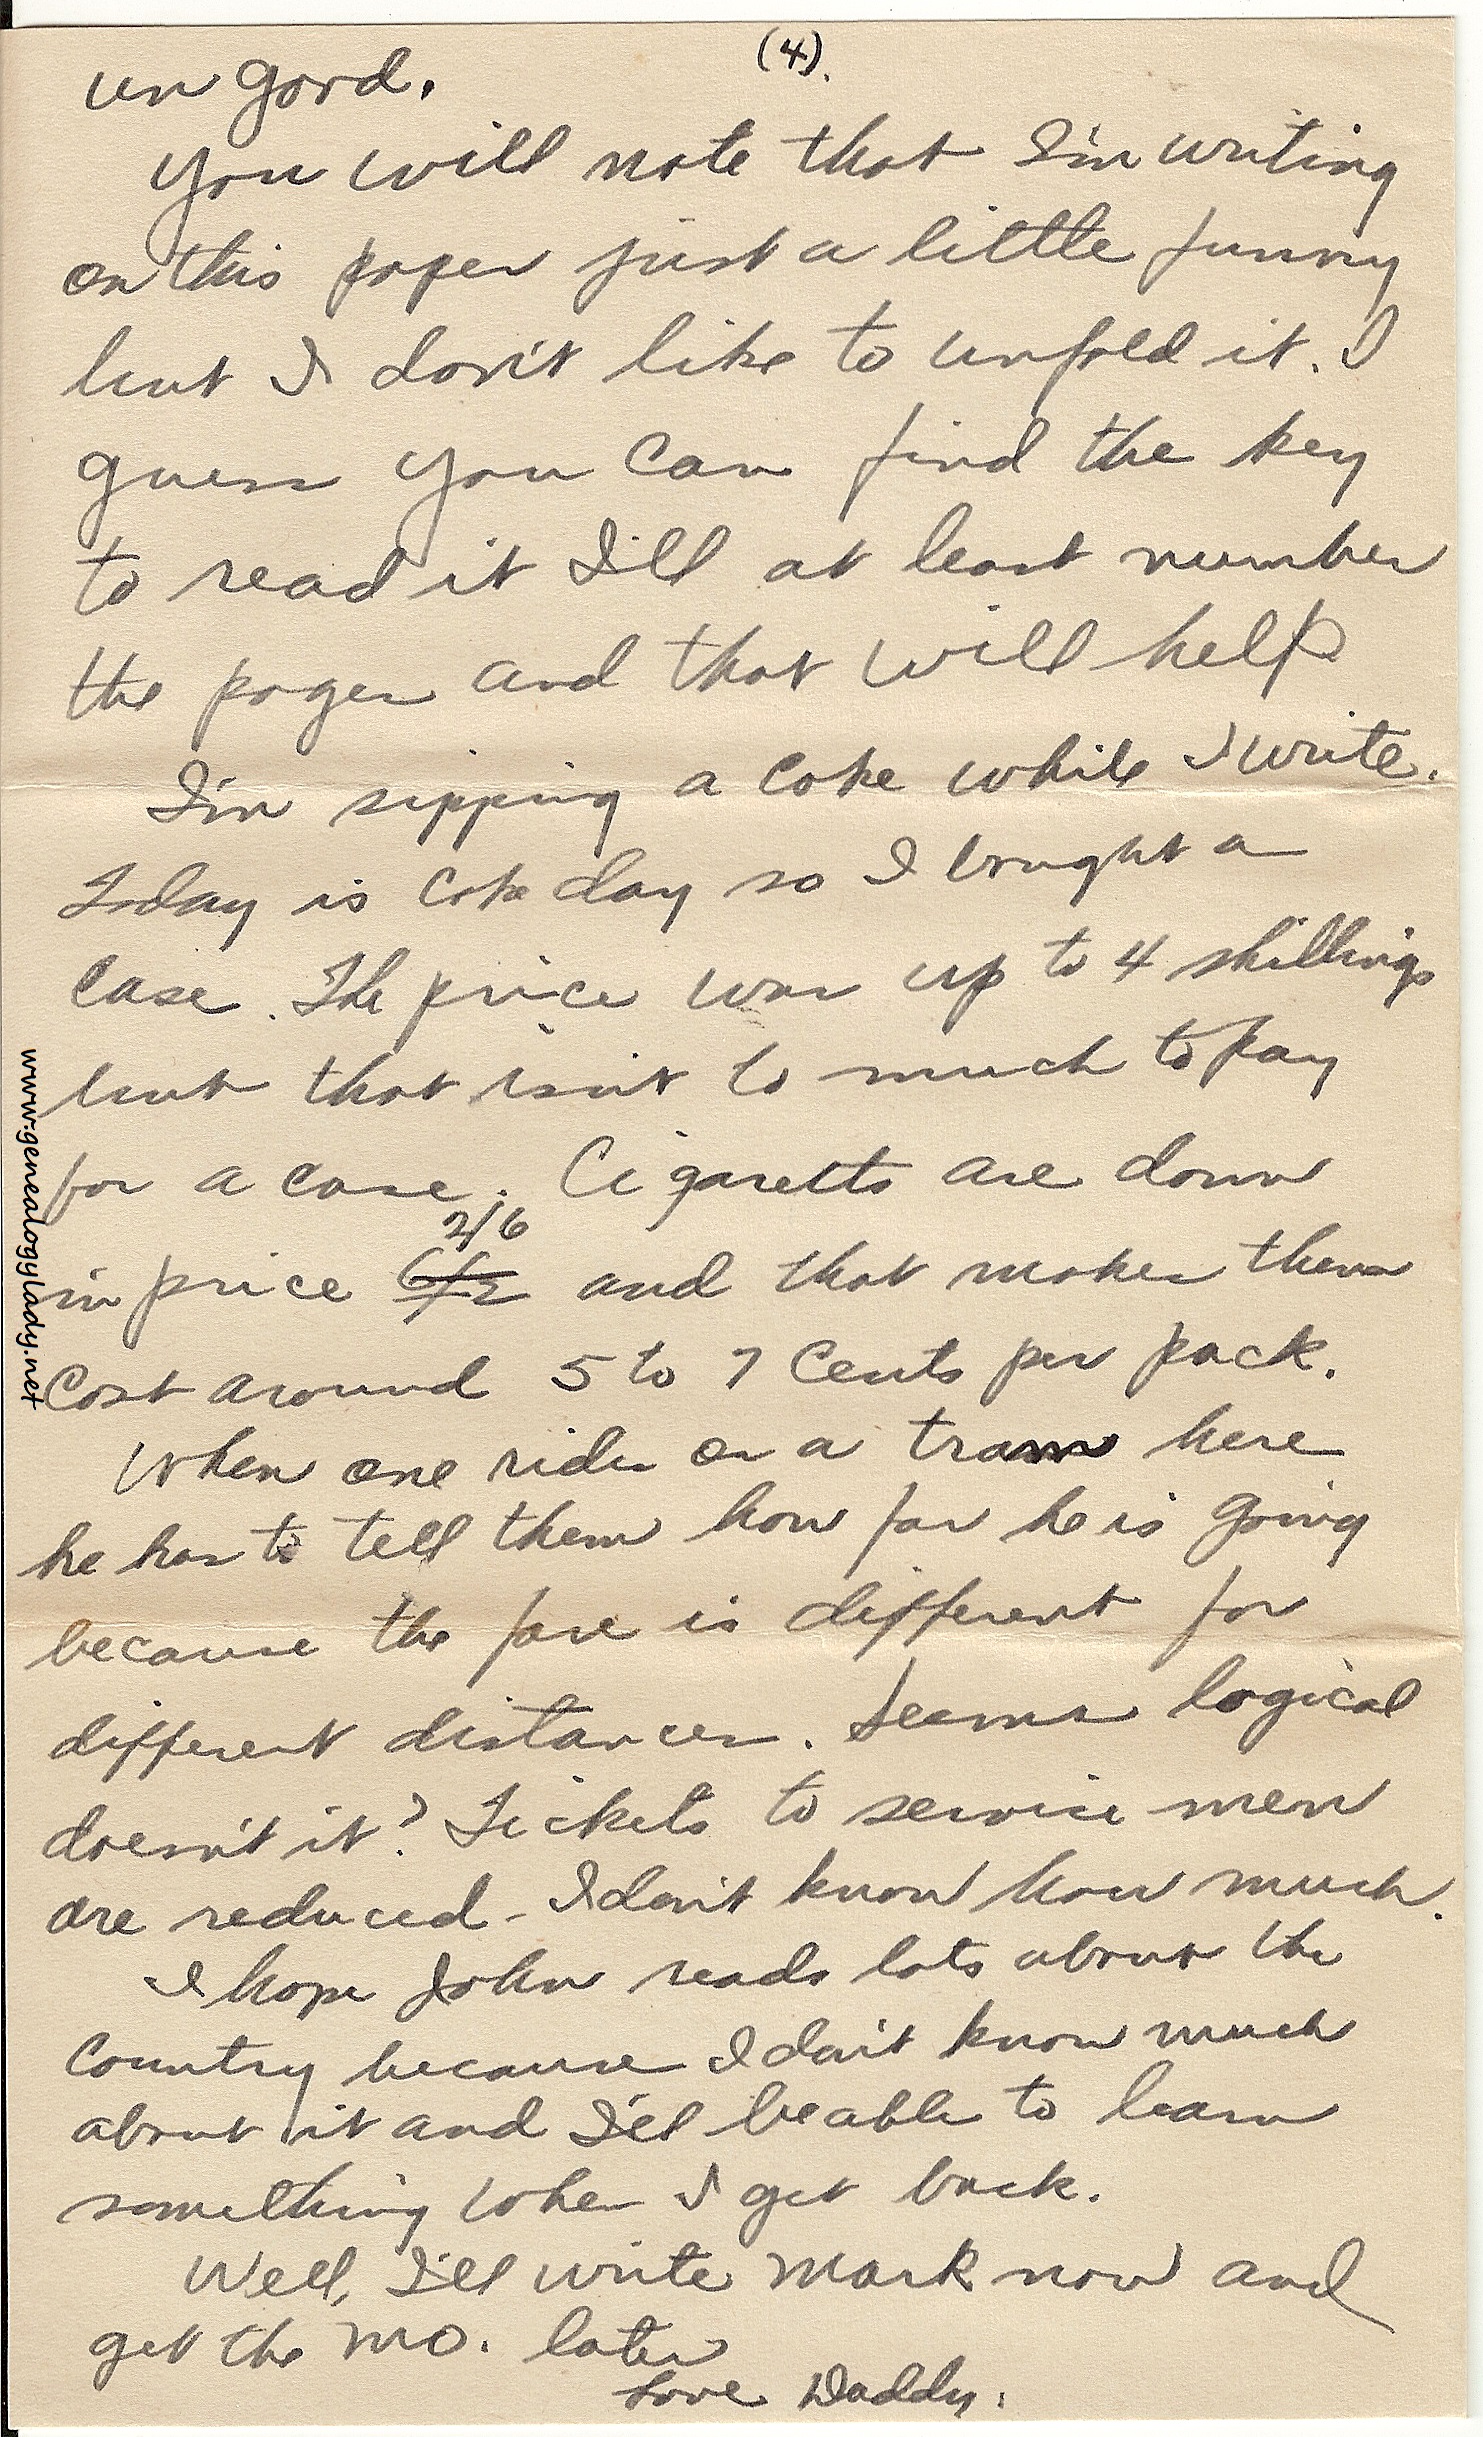 (4).
un good.
You will note that I'm writing
on this paper just a little funny
but I don't like to unfold it. I
guess you can find the key
to read it I'll at least number
the pages and that will help
I'm sipping a coke while I write.
Today is coke day so I bought a
case. The price was up to 4 shillings
but that isn't to much to pay
for a case. Cigaretts are down
2/6
in price and that makes them
cost around 5 to 7 cents per pack.
When one rides on a tram here
he has to tell them how far he is going
because the fare is different for
different distances. Seems logical
doesn't it? Tickets to service men
are reduced - I don't know how much.
I hope John reads lots about the
country because I don't know much
about it and I'll be able to learn
something when I get back.
Well, I'll write Mark now and
get the MO. later
Love Daddy.
www.genealogylady.net